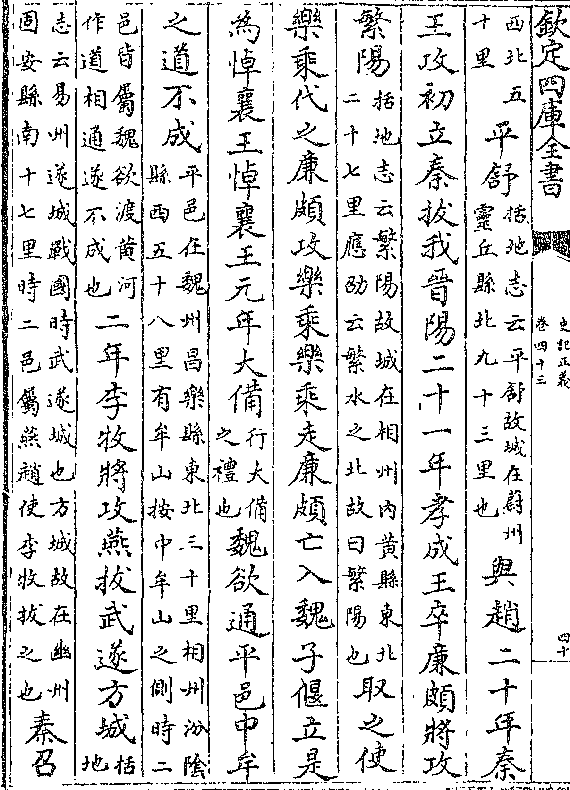 欽定四庫全書
史記正義
卷四十三
四十
西北五
十里
平舒
括地志云平舒故城在蔚州
靈丘縣北九十三里也
與趙二十年秦
王攻初立秦拔我晉陽二十一年孝成王卒廉頗將攻
繁陽
括地志云繁陽故城在相州内黄縣東北
二十七里應劭云繁水之北故曰繁陽也
取之使
樂乘代之廉頗攻樂乘樂乘走廉頗亡入魏子偃立是
為悼襄王悼襄王元年大備
行大備
之禮也
魏欲通平邑中牟
之道不成
平邑在魏州昌樂縣東北三十里相州汾陰
縣西五十八里有牟山按中牟山之側時二
邑皆屬魏欲渡黄河
作道相通遂不成也
二年李牧將攻燕拔武遂方城
括地
志云易州遂城戰國時武遂城也方城故在幽州
固安縣南十七里時二邑屬燕趙使李牧拔之也
秦召